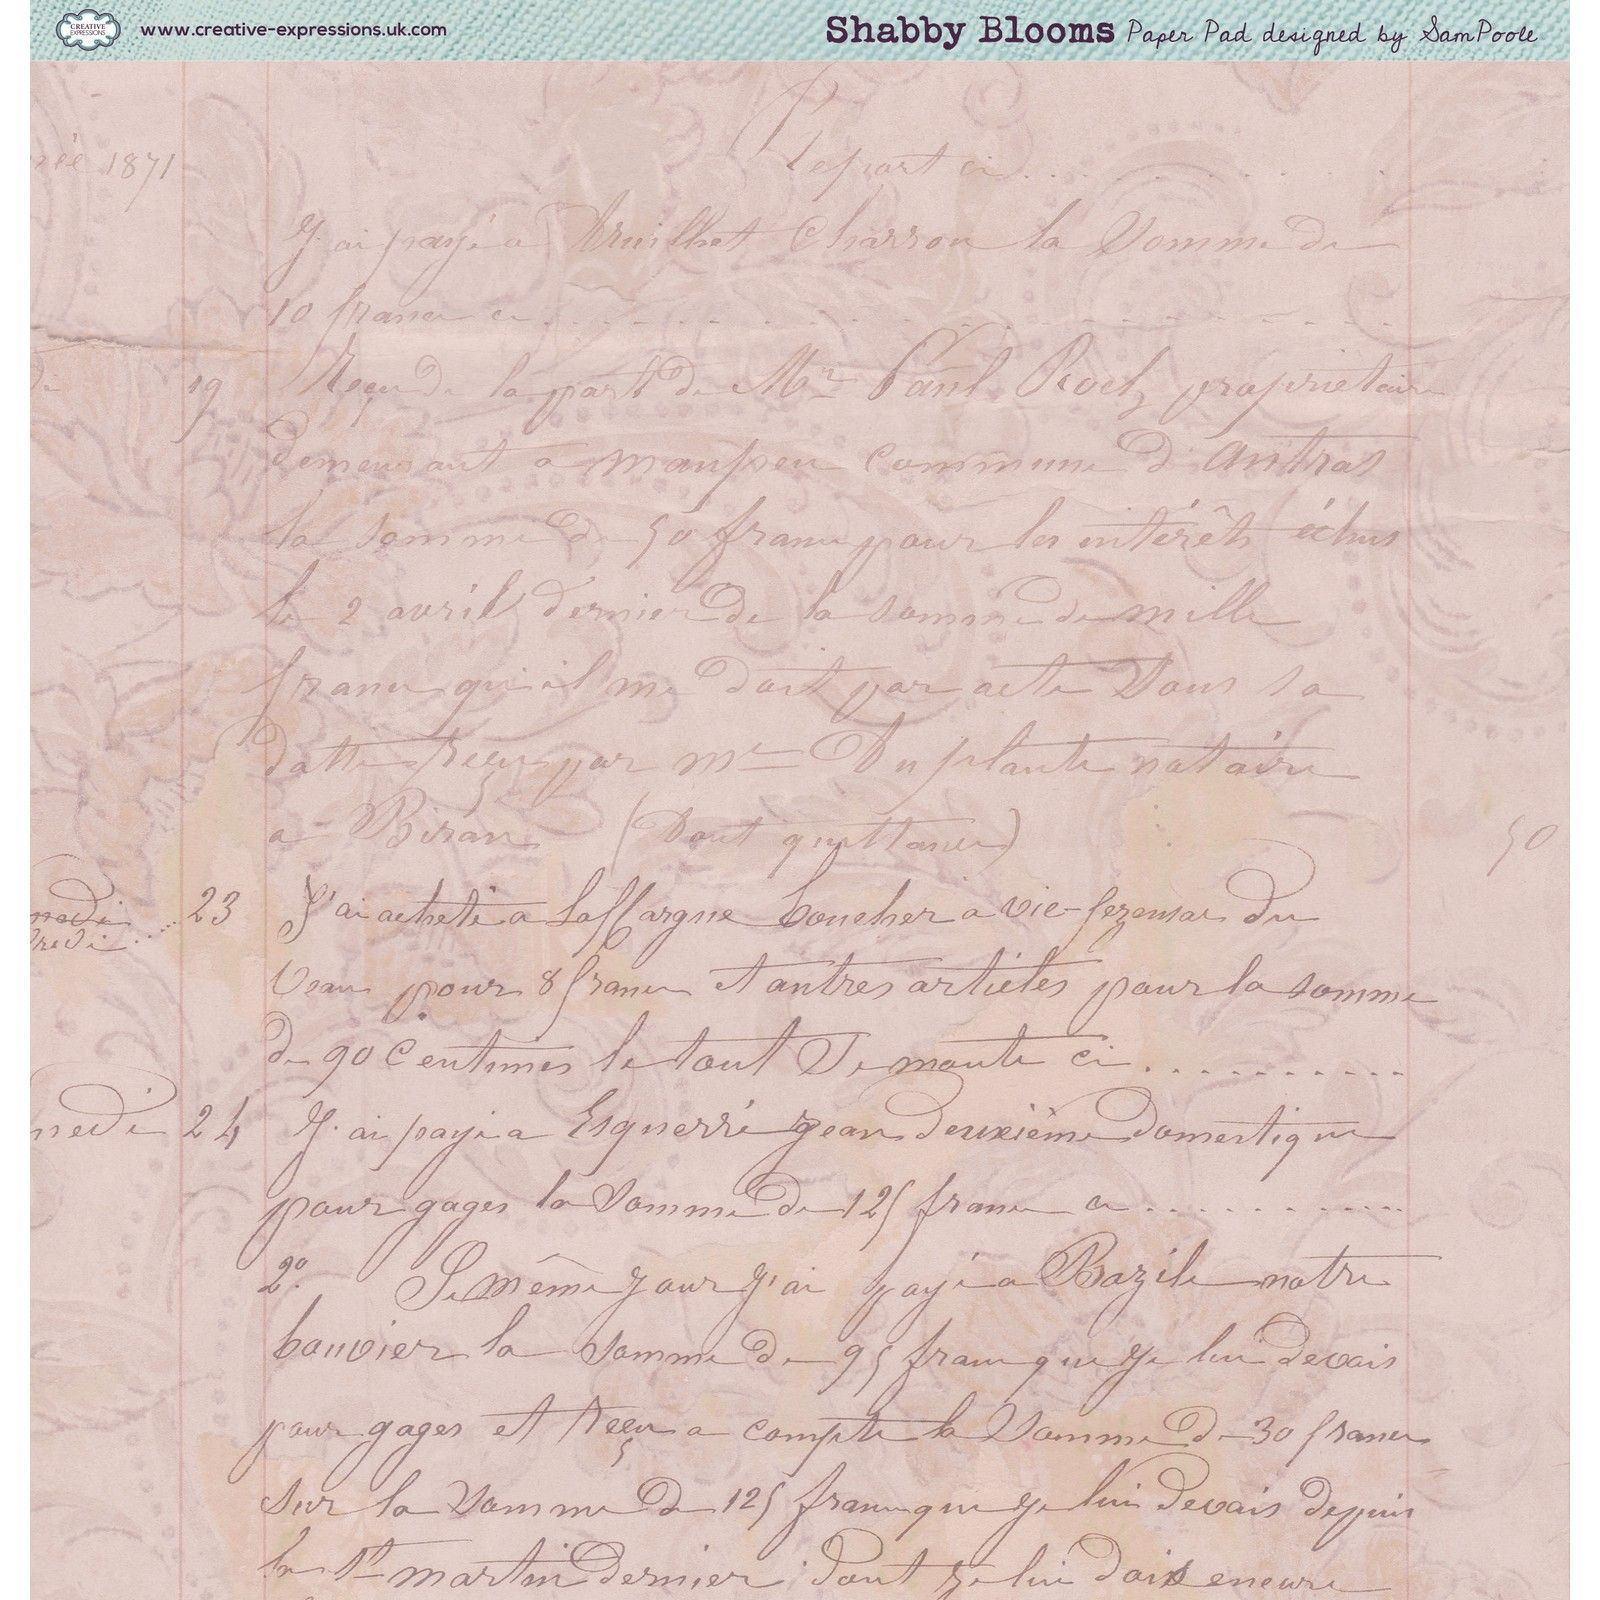 CREATIVE EXPRESSIONS
www.creative-expressions.uk.com
Shabby Blooms Paper Pad designed by Sam Poole
née 1871
Report ci . . . . . . . . .
J'ai payé a Druilhet Charron la Somme de
10 francs ci . . . . . . . . . .
di 19 Reçu de la part de Mr Paul Roch propriétaire
demeurant a maupeu commune d'Antras
la somme de 50 francs pour les intérêts échus
le 2 avril dernier de la somme de mille
francs qu'il me doit par acte Sous sa
datte reçu par Me Duplante notaire
a Biran (Dont quittance) 50
nedi
redi . . . 23 J'ai acheté a Lafforgue boucher a vic-fezensac du
Veau pour 8 francs et autres articles pour la somme
de 90 Centimes le tout Se monte ci . . . . . . . . . .
medi 24 J'ai payé a Esquerré Jean deuxième domestique
pour gages la Somme de 125 francs ci . . . . . . . . . .
2° Le même jour j'ai payé a Bazile notre
bouvier la Somme de 95 francs que je lui devais
pour gages et reçu a compte la Somme de 30 francs
Sur la Somme de 125 francs que je lui devais depuis
la St martin dernier Dont je lui dois encore